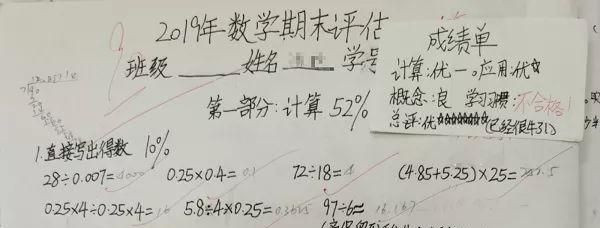 2019年数学期末评估
班级 姓名 学号
成绩单
计算:优一。应用:优☆
概念:良 学习习惯:不合格!
总评:优☆☆☆☆☆☆☆(已经很牛31)
第一部分:计算 52%
1.直接写出得数 10%
28÷0.007=4000 0.25×0.4=0.1 72÷18=4 (4.85+5.25)×25=252.5
0.25×4÷0.25×4=16 5.8÷4×0.25=0.3625 97÷6≈16.167